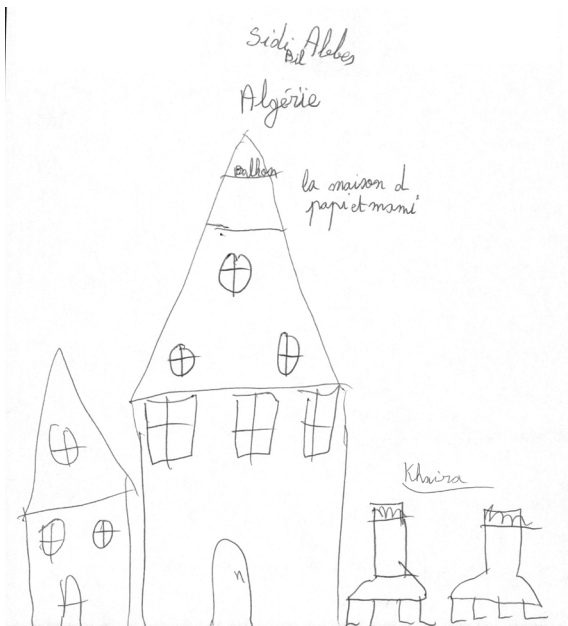 Sidi Bil Abbes
Algérie
la maison d
papi et mami
Khaira